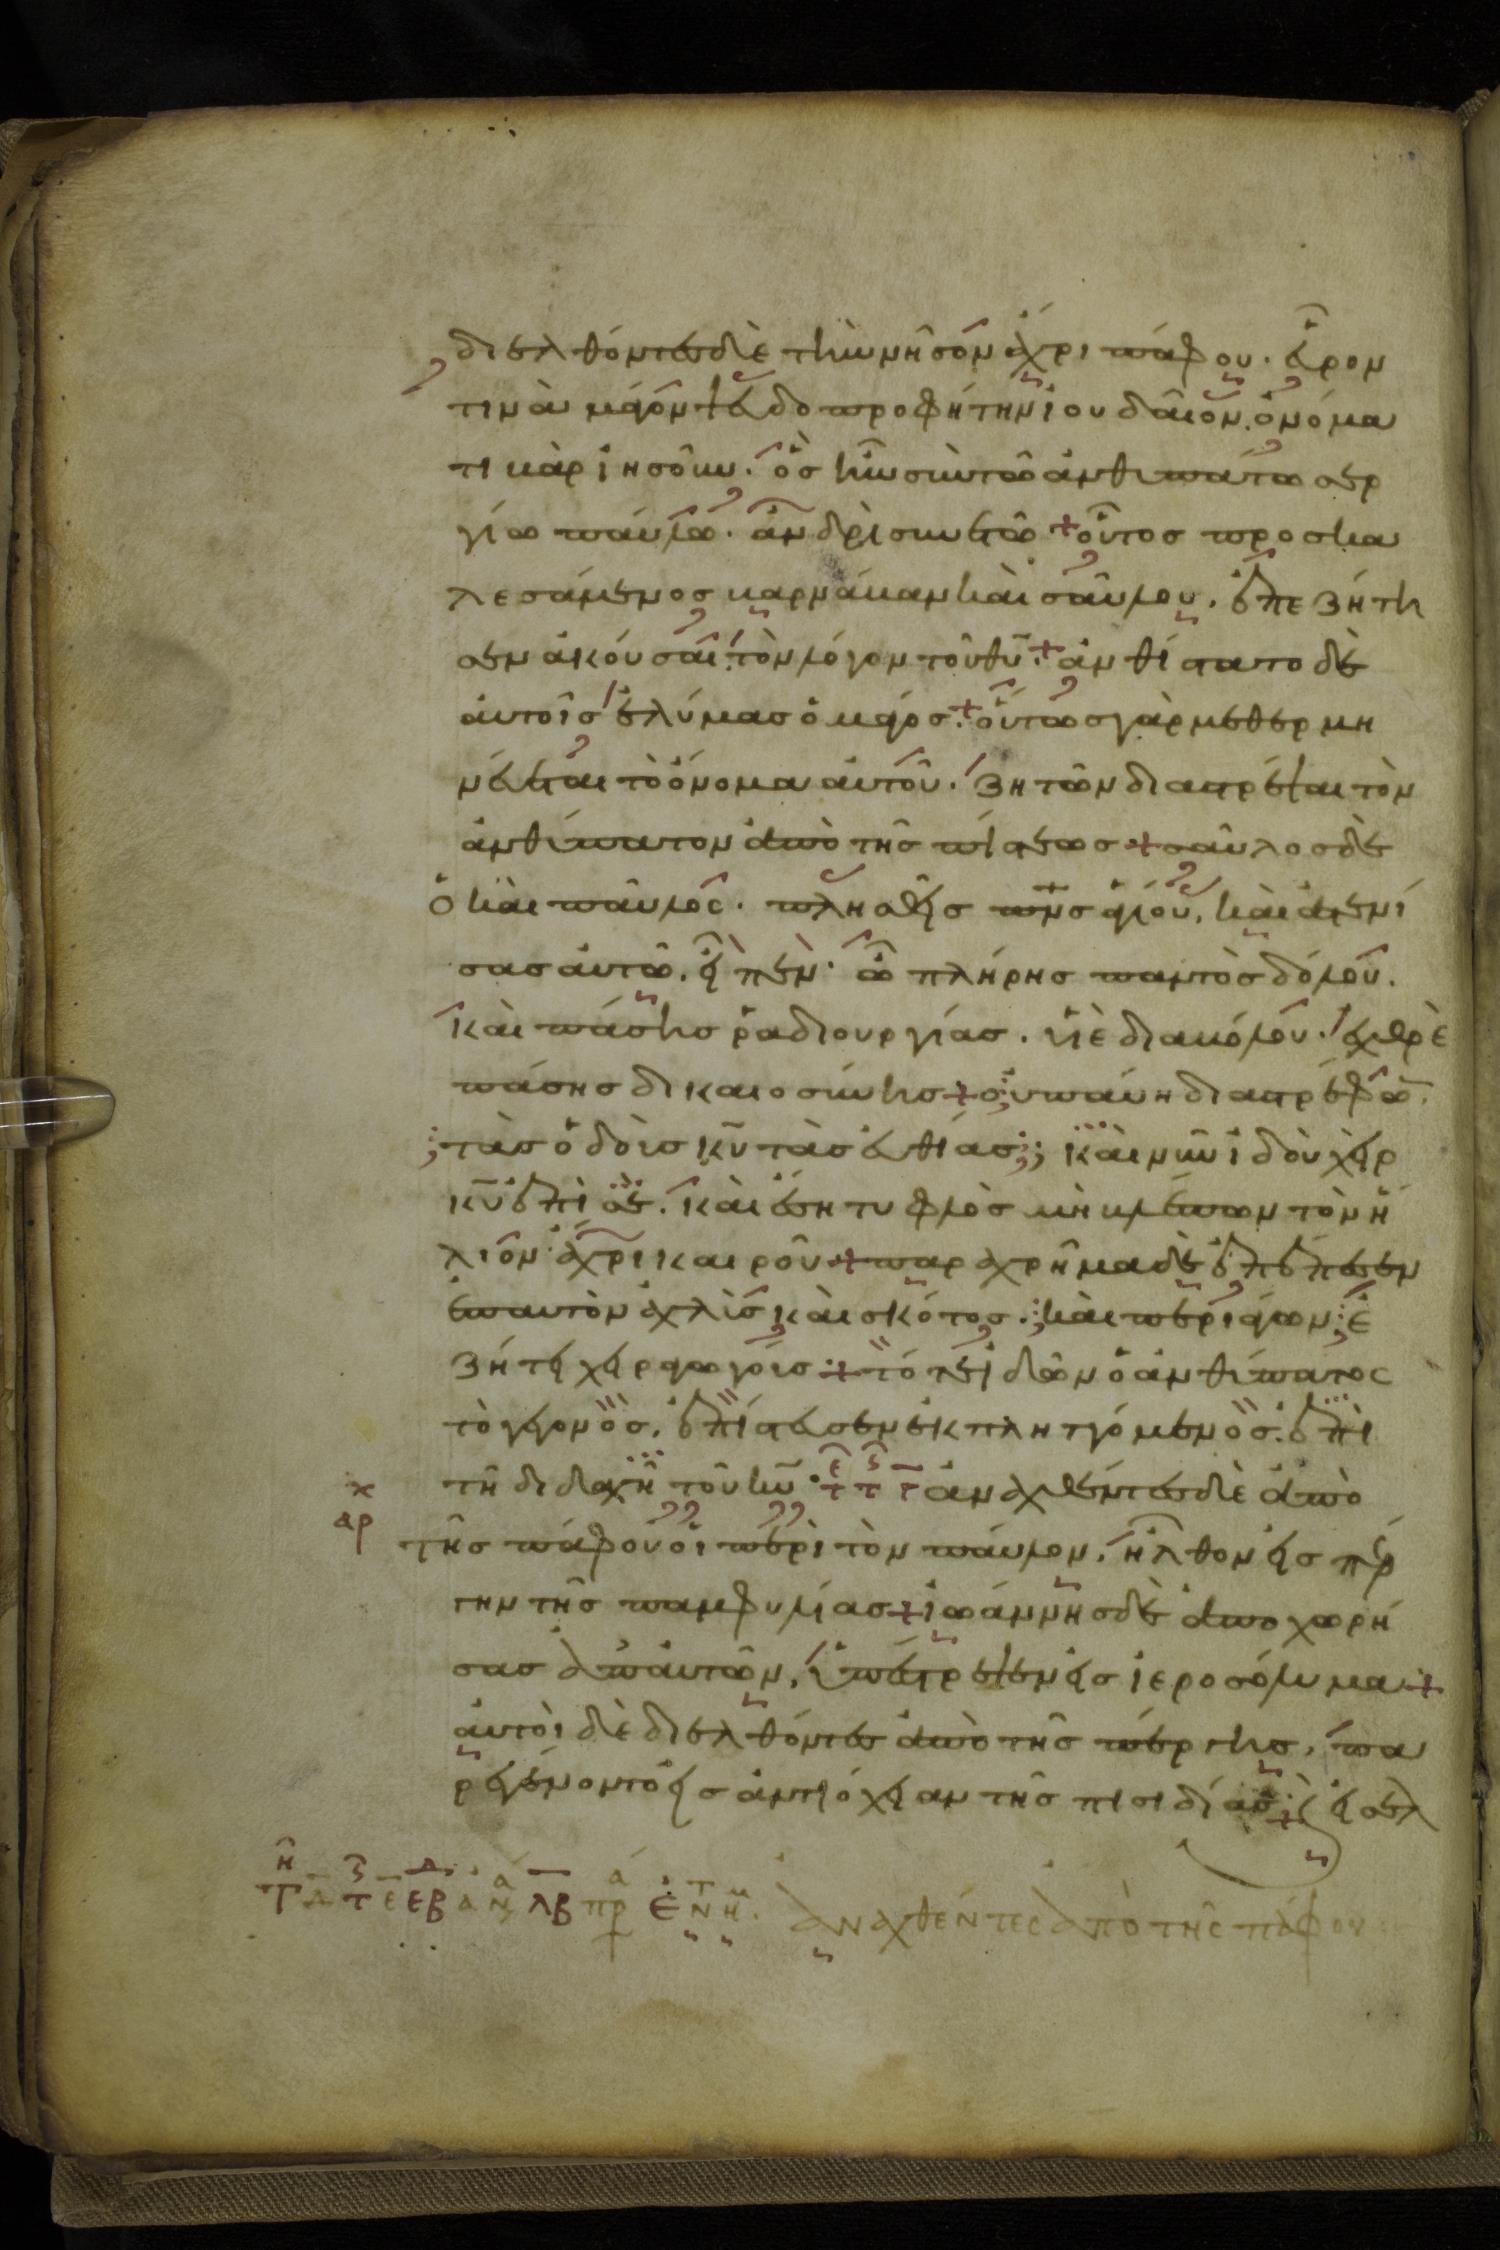 διελθόντες δὲ τὴν νῆσον ἄχρι πάφου. εὗρον
τινὰ μάγον ψευδοπροφήτην ἰουδαῖον. ὀνόμα
τι βὰρ ἰησοῦν. ὃς ἦν σὺν τῶ ἀνθυπάτω σερ
γίω παύλω. ἀνδρὶ συνετῶ + οὗτος προσκα
λεσάμενος βαρνάβαν καὶ σαῦλον. ἐπεζήτη
σεν ἀκοῦσαι τὸν λόγον τοῦ θυ + ἀνθίστατο δὲ
αὐτοῖς ἐλύμας ὁ μάγος + οὕτως γὰρ μεθερμη
νεύεται τὸ ὄνομα αὐτοῦ. ζητῶν διαστρέψαι τὸν
ἀνθύπατον ἀπὸ τῆς πίστεως + σαῦλος δὲ
ὁ καὶ παῦλος. πλησθεὶς πνς ἁγίου, καὶ ἀτενί
σας αὐτῶ. εἶπεν· ὦ πλήρης παντὸς δόλου.
καὶ πάσης ῥαδιουργίας. υἱὲ διαβόλου. ἐχθρὲ
πάσης δικαιοσύνης + οὐ παύη διαστρέφων
τὰς ὁδοὺς κυ τὰς εὐθείας; καὶ νῦν ἰδοὺ χεὶρ
κυ ἐπὶ σέ. καὶ ἔση τυφλὸς μὴ βλέπων τὸν ἥ
λιον ἄχρι καιροῦ + παραχρῆμα δὲ ἐπέπεσεν
ἐπ αυτὸν ἀχλὺς καὶ σκότος. καὶ περιάγων ἐ
ζήτει χειραγωγούς + τότε ἰδὼν ὁ ἀνθύπατος
τὸ γεγονὸς. ἐπίστευσεν ἐκπλητγόμενος. ἐπὶ
τῆ διδαχῆ τοῦ κυ ἀναχθέντες δὲ ἀπὸ
αρ
τῆς πάφου οἱ περὶ τὸν παύλον. ἦλθον εἰς πέρ
γην τῆς παμφυλίας + ἰωάννης δὲ ἀποχωρή
σας ἀπ αὐτῶν, ὑπέστρεψεν εἰς ἱεροσόλυμα +
αὐτοὶ δὲ διελθόντες ἀπὸ τῆς πέργης, πα
ρεγένοντο εἰς ἀντιόχειαν τῆς πισιδίας + εἰσελ
ἀναχθέντες ἀπὸ τῆς πάφου